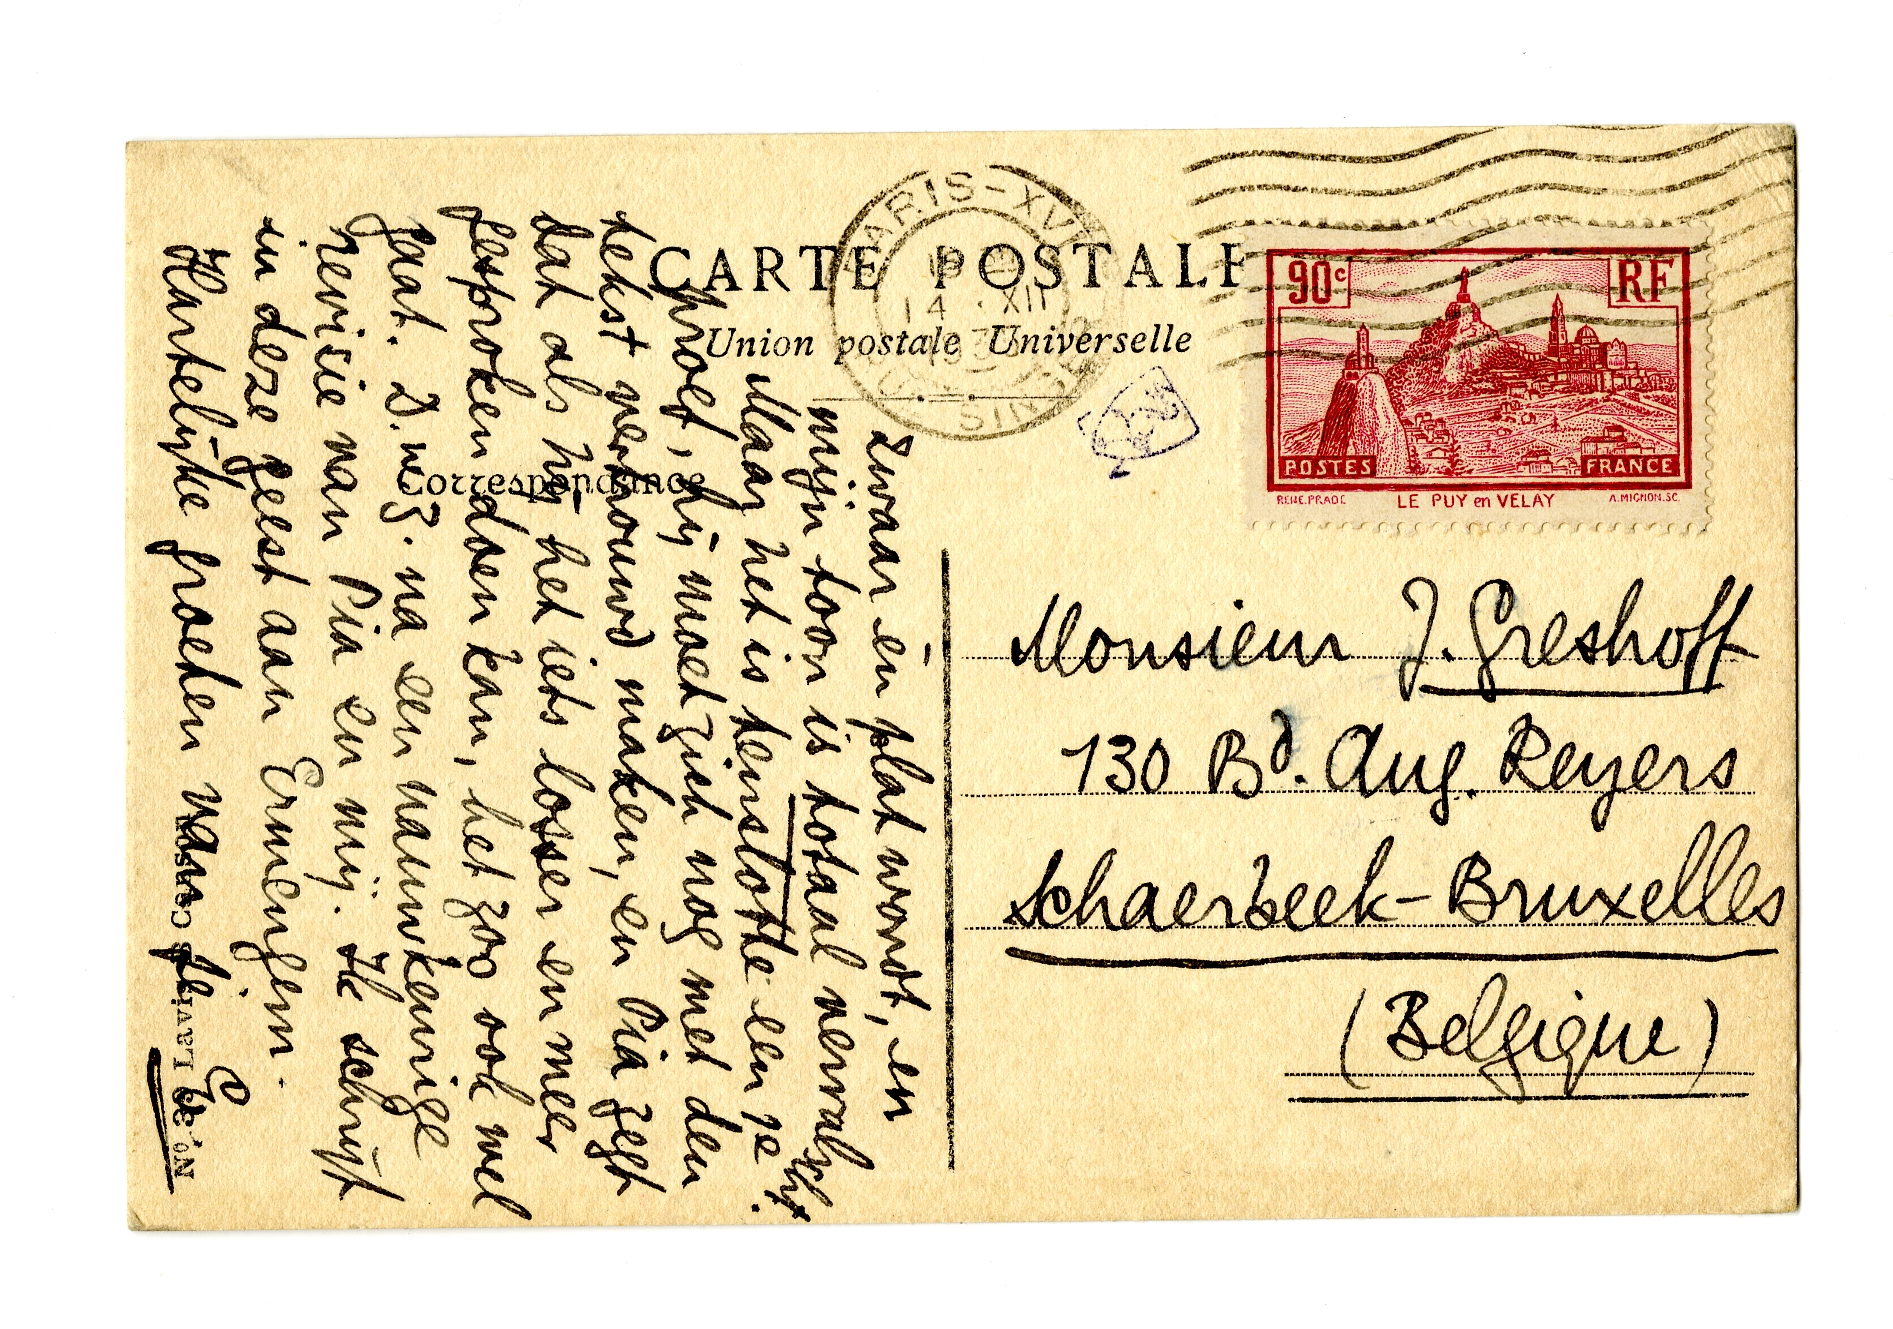 CARTE POSTALE
Union postale Universelle
Correspondance
PARIS-XVI
14 XII
SINGER
90c
RF
POSTES
FRANCE
RENE.PRADE
LE PUY en VELAY
A.MIGNON.SC.
zwaar en plat wordt, en
mijn toon is totaal vervalscht.
Maar het is tenslotte een je
proef, hij moet zich nog met den
tekst vertrouwd maken, en Pia zegt
dat als hij het iets losser en meer
gesproken doen kan, het zoo ook wel
gaat. D.w.z. na een nauwkeurige
revisie van Pia en mij. Ik schrijf
in deze geest aan Ermengem.
Hartelijke groeten van je
E.
Monsieur J. Greshoff
130 Bd. Aug. Reyers
Schaerbeek-Bruxelles
(Belgique)